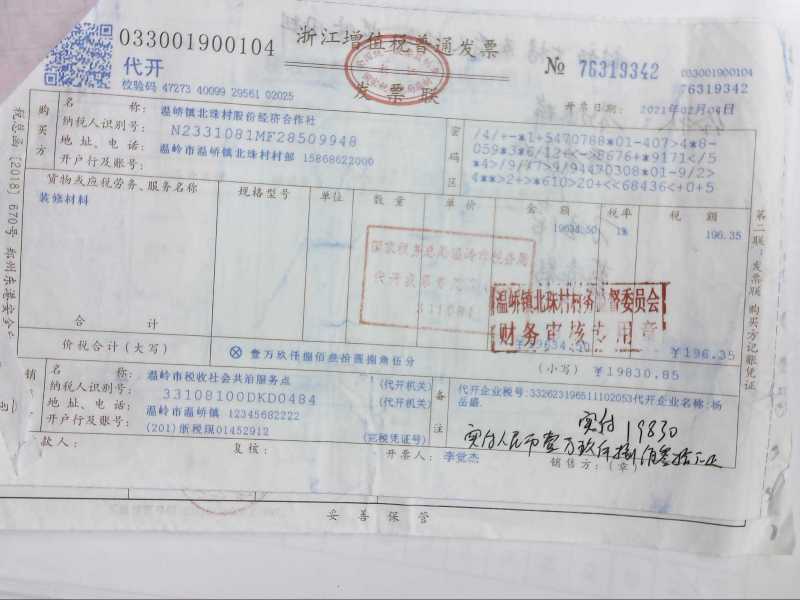 033001900104
浙江增值税普通发票
代开
校验码 47273 40099 29561 02025
发票联
№ 76319342
033001900104
76319342
开票日期: 2021年02月04日
税总函(2018)670号
购买方
名 称: 温峤镇北珠村股份经济合作社
纳税人识别号: N2331081MF28509948
地址、电话: 温岭市温峤镇北珠村村部 15868622000
开户行及账号:
密码区
/4/+-*1+5470788*01-407>4*8-
059*3*6/12+<->8676+*9171</5
*4>/9/*7>9/94470308*01-9/2>
4**>2+>*610>20+<<68436+<+0+5
货物或应税劳务、服务名称 规格型号 单位 数量 单价 金额 税率 税额
装修材料 19634.50 1% 196.35
国家税务总局温岭市税务局
温峤镇北珠村村务监督委员会
财务审核专用章
合 计 ¥19634.50 ¥196.35
价税合计(大写) ⊗ 壹万玖仟捌佰叁拾圆捌角伍分 (小写) ¥19830.85
名 称: 温岭市税收社会共治服务点 (代开机关)
纳税人识别号: 33108100DKD0484 (代开机关)
地址、电话: 温岭市温峤镇 12345682222
开户行及账号: (201)浙税现01452912 (完税凭证号)
备注
代开企业税号:332623196511102053代开企业名称:杨
实付 19830
款人: 复核: 开票人: 李觉杰 销售方:(章)
第二联:发票联 购买方记账凭证
妥善保管